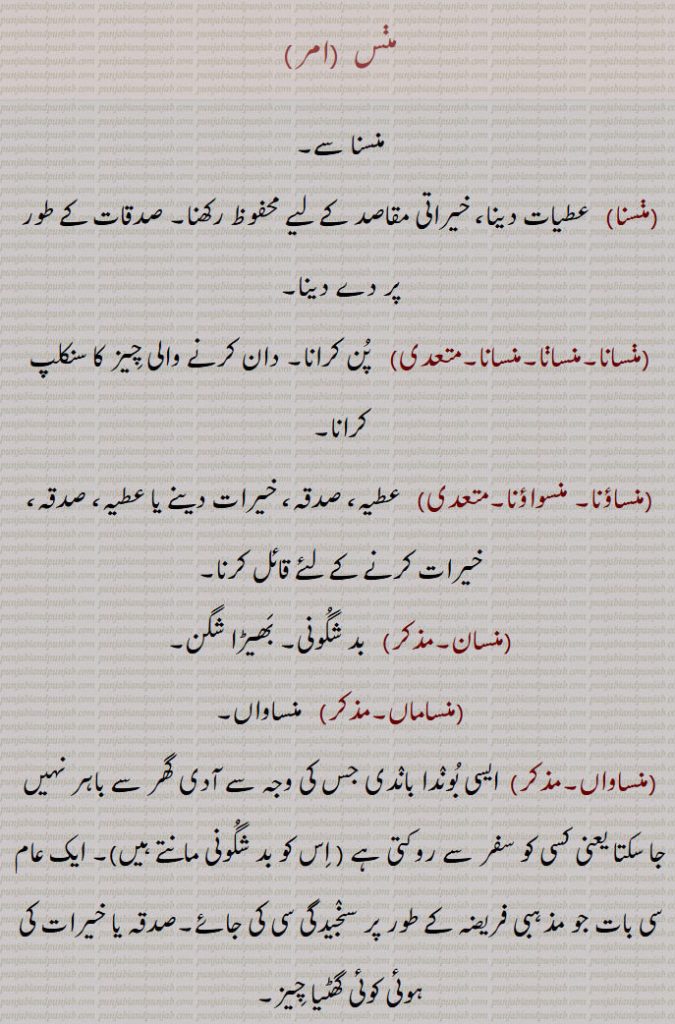 منٛس (امر)
منسنا سے۔
(منٛسنا) عطیات دینا، خیراتی مقاصد کے لیے محفوظ رکھنا۔ صدقات کے طور
پر دے دینا۔
(منٛسانا۔منسانٛا۔منسانا۔متعدی) پُن کرانا۔ دان کرنے والی چِیز کا سنکلپ
کرانا۔
(منساؤنا۔ منسواؤنا۔متعدی) عطیہ، صدقہ، خیرات دینے یا عطیہ، صدقہ،
خیرات کرنے کے لئے قائل کرنا۔
(منسان۔مذکر) بد شگُونی۔ بَھیڑا شگن۔
(منساماں۔مذکر) منساواں۔
(منساواں۔مذکر) ایسی بُونٛدا بانٛدی جس کی وجہ سے آدی گھر سے باہر نہیں
جا سکتا یعنی کسی کو سفر سے روکتی ہے (اِس کو بد شگُونی مانتے ہیں)۔ ایک عام
سی بات جو مذہبی فریضہ کے طور پر سنٛجیدگی سی کی جائے۔صدقہ یا خیرات کی
ہوئی کوئی گھٹیا چِیز۔